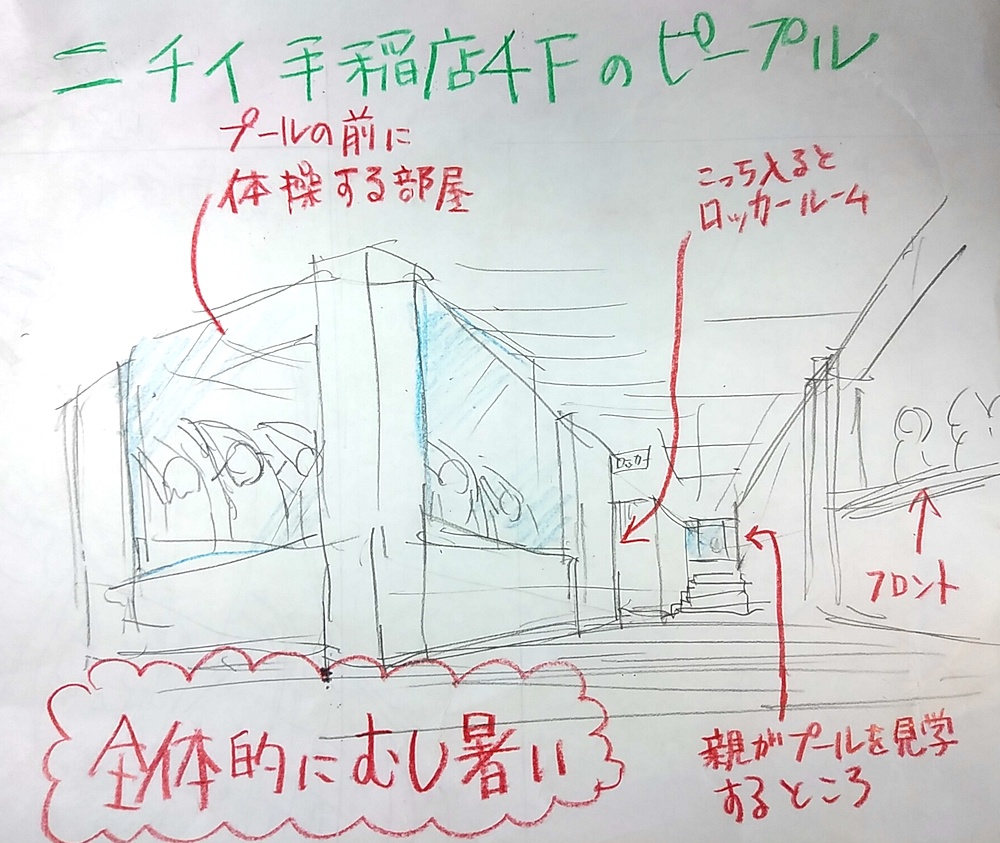 ニチイ手稲店4Fのピープル
プールの前に
体操する部屋
こっち入ると
ロッカールーム
ロッカー
フロント
親がプールを見学
するところ
全体的にむし暑い